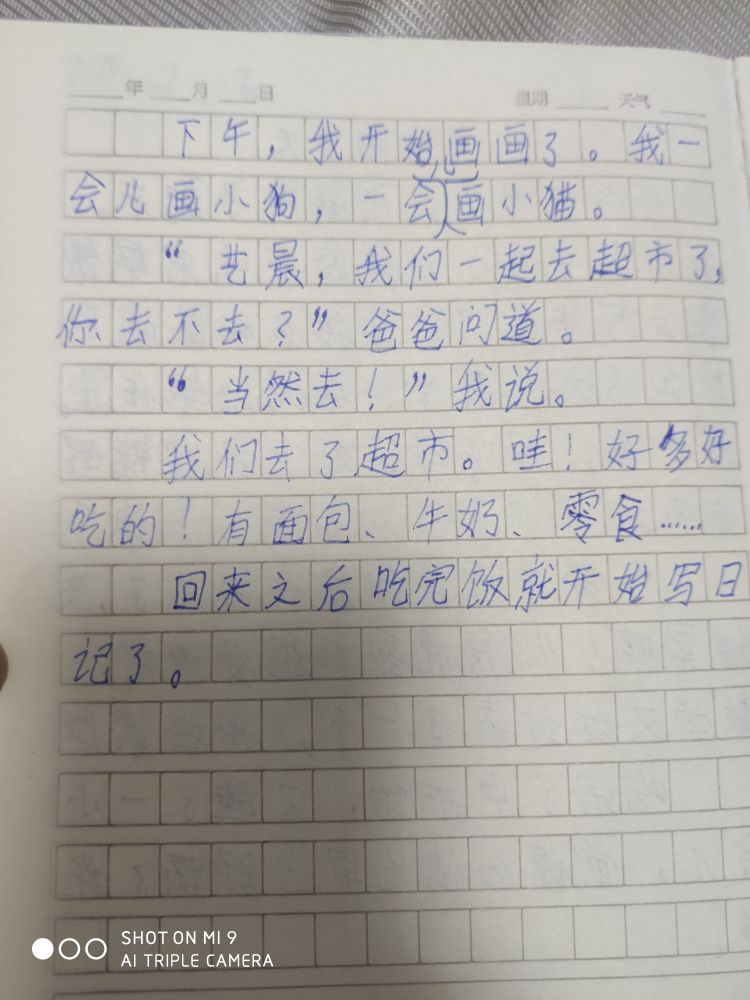 年 月 日 星期 天气
下午，我开始画画了。我一
会儿画小狗，一会儿画小猫。
“艺晨，我们一起去超市了，
你去不去？”爸爸问道。
“当然去！”我说。
我们去了超市。哇！好多好
吃的！有面包、牛奶、零食……
回来之后吃完饭就开始写日
记了。
SHOT ON MI 9
AI TRIPLE CAMERA